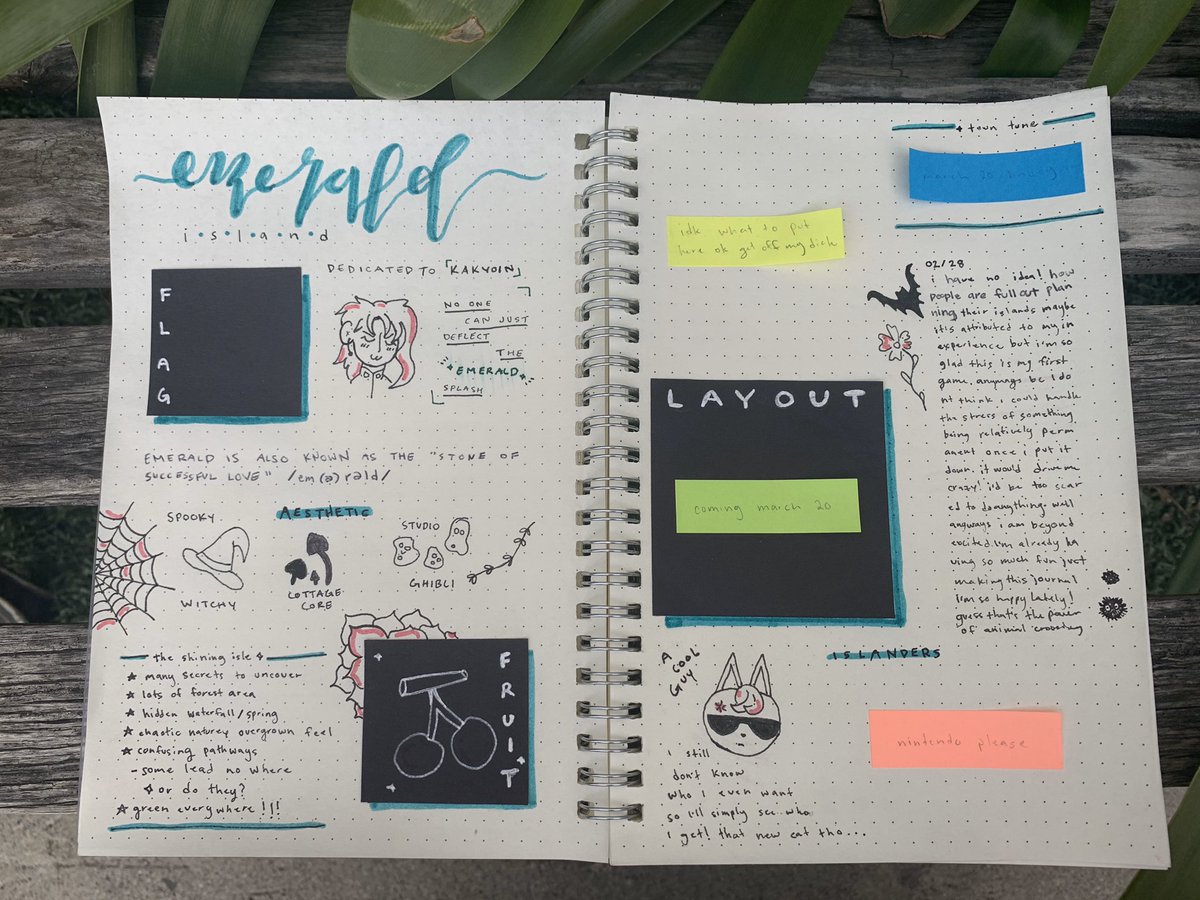 emerald
island
FLAG
DEDICATED TO「KAKYOIN」
NO ONE
CAN JUST
DEFLECT
THE
EMERALD
SPLASH
EMERALD IS ALSO KNOWN AS THE "STONE OF
SUCCESSFUL LOVE" /em(ə)rəld/
AESTHETIC
SPOOKY
WITCHY
COTTAGE
CORE
STUDIO
GHIBLI
the shining isle
many secrets to uncover
lots of forest area
hidden waterfall/spring
chaotic naturey overgrown feel
confusing pathways
- some lead no where
or do they?
green everywhere!!!
FRUIT
town tune
march 20
idk what to put
here ok get off my dick
02/28
i have no idea! how
people are full out plan
ning their islands maybe
it's attributed to my in
experience but i'm so
glad this is my first
game. anyways bc I do
nt think i could handle
the stress of something
being relatively perm
anent once i put it
down. it would drive me
crazy! i'd be too scar
ed to do anything. well
anyways i am beyond
excited. i'm already ha
ving so much fun just
making this journal
i'm so happy lately!
guess that's the power
of animal crossing
LAYOUT
coming march 20
ISLANDERS
A
COOL
GUY
nintendo please
i still
don't know
who I even want
so i'll simply see who
I get! that new cat tho...